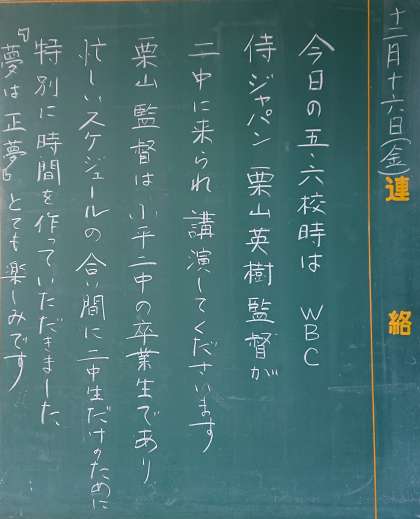 十二月十六日(金)
連絡
今日の五・六校時は WBC
侍ジャパン 栗山英樹監督が
二中に来られ講演してくださいます
栗山監督は小平二中の卒業生であり
忙しいスケジュールの合い間に二中生だけのために
特別に時間を作っていただきました、
『夢は正夢』とても楽しみです